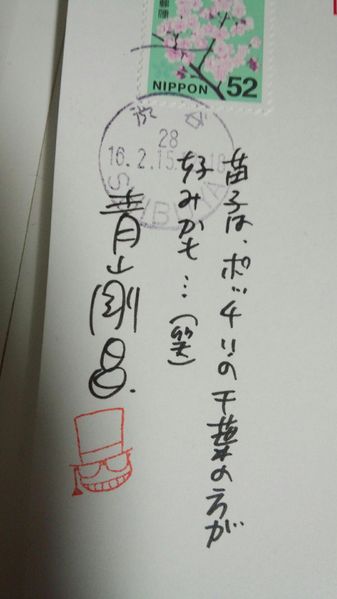 郵便
NIPPON 52
渋谷
28
16.2.15
SHIBUYA
苗子は、ポッチャリの千葉の方が
好みかも…(笑)
青山剛昌.